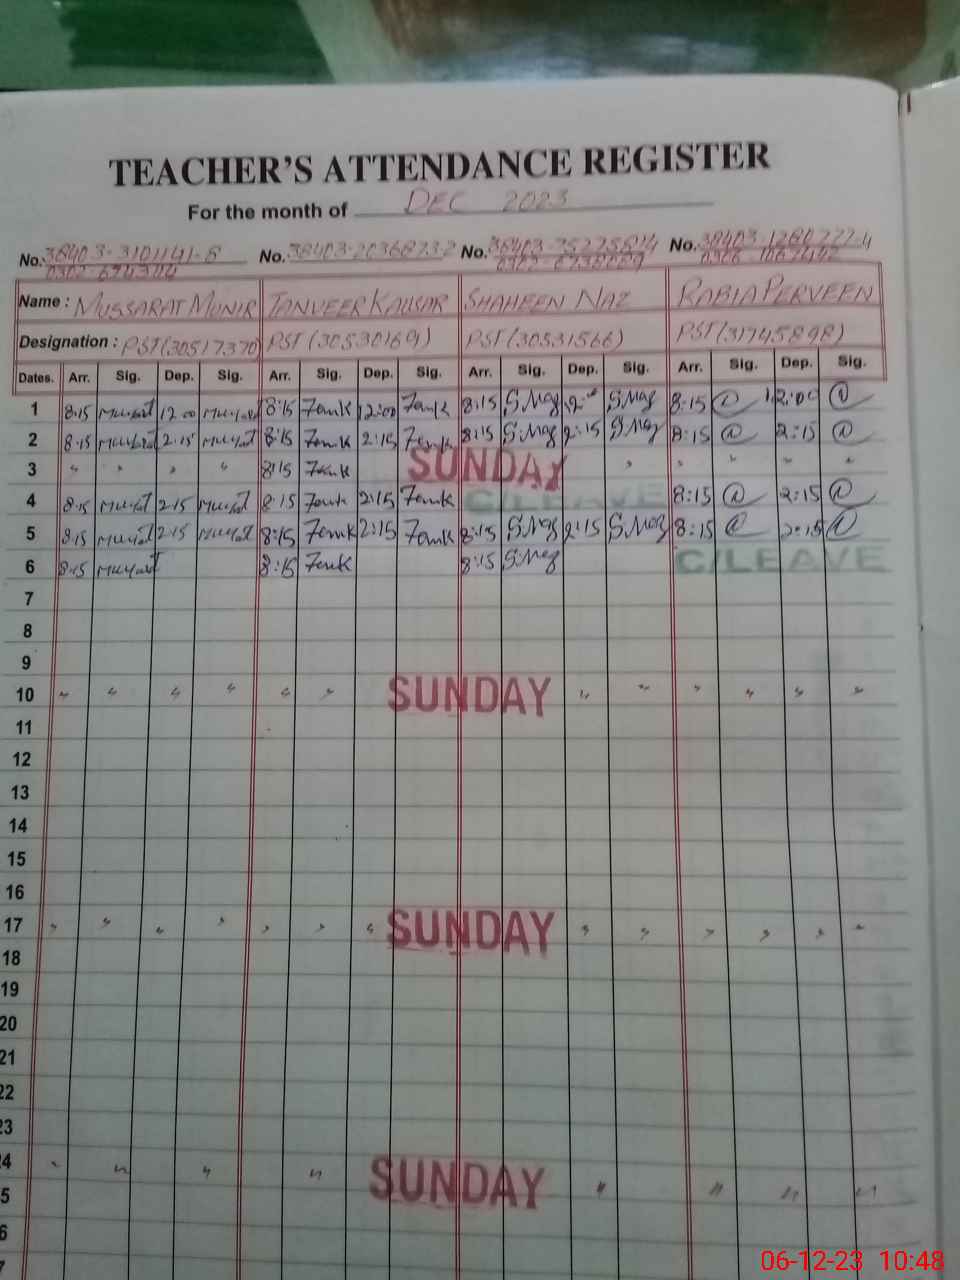 TEACHER'S ATTENDANCE REGISTER
For the month of DEC 2023
No. 38403-3101141-8 No. 38403-2036873-2 No. 38403-7522758-4 No. 38403-1280777-4
Name : MUSSARAT MUNIR TANVEER KAUSAR SHAHEEN NAZ RABIA PERVEEN
Designation : PST(30517370) PST (30530169) PST(30531566) PST(31745898)
Dates. Arr. Sig. Dep. Sig. Arr. Sig. Dep. Sig. Arr. Sig. Dep. Sig. Arr. Sig. Dep. Sig.
1 8:15 12:00 8:15 12:00 8:15 S.Naz S.Naz 8:15 12:00
2 8:15 2:15 8:15 2:15 8:15 S.Naz 2:15 S.Naz 8:15 2:15
3 " " " " 8:15 SUNDAY " " " " "
4 8:15 2:15 8:15 2:15 C/LEAVE 8:15 2:15
5 8:15 2:15 8:15 2:15 8:15 S.Naz 2:15 S.Naz 8:15 2:15
6 8:15 8:15 8:15 S.Naz C/LEAVE
7
8
9
10 " " " " " " SUNDAY " " " " " "
11
12
13
14
15
16
17 " " " " " " " SUNDAY " " " " " "
18
19
20
21
22
23
24 " " " " SUNDAY " " " "
5
6
7
06-12-23 10:48